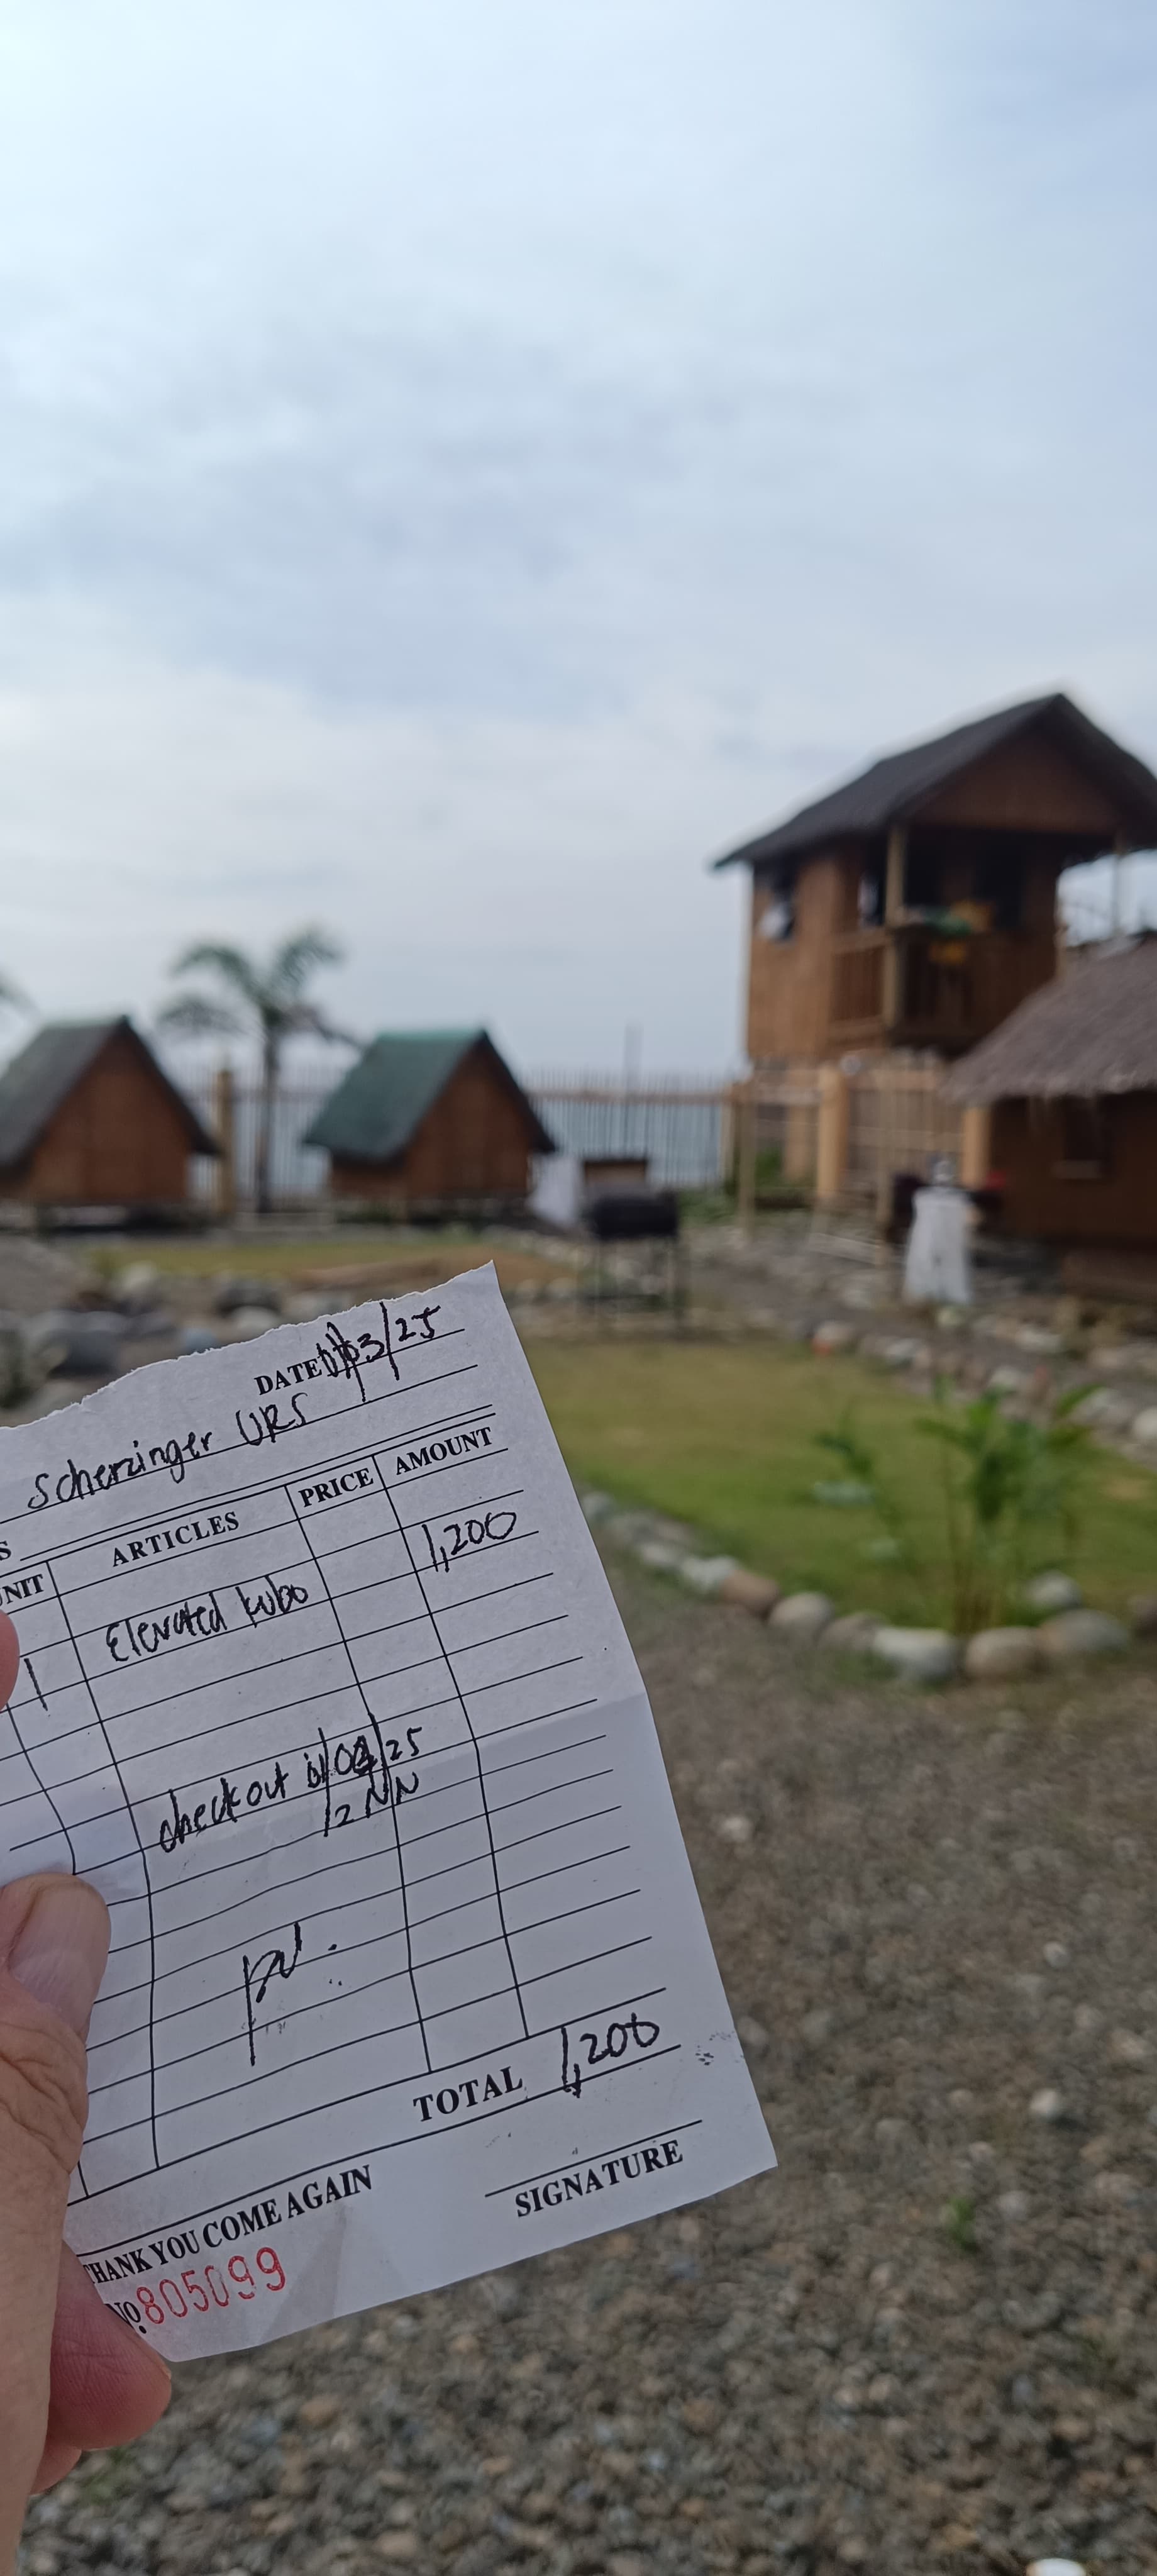 DATE 01/03/25
Scherzinger URS
S
UNIT ARTICLES PRICE AMOUNT
1 Elevated kubo 1,200
checkout 01/04/25
12 NN
TOTAL 1,200
THANK YOU COME AGAIN
SIGNATURE
No. 805099